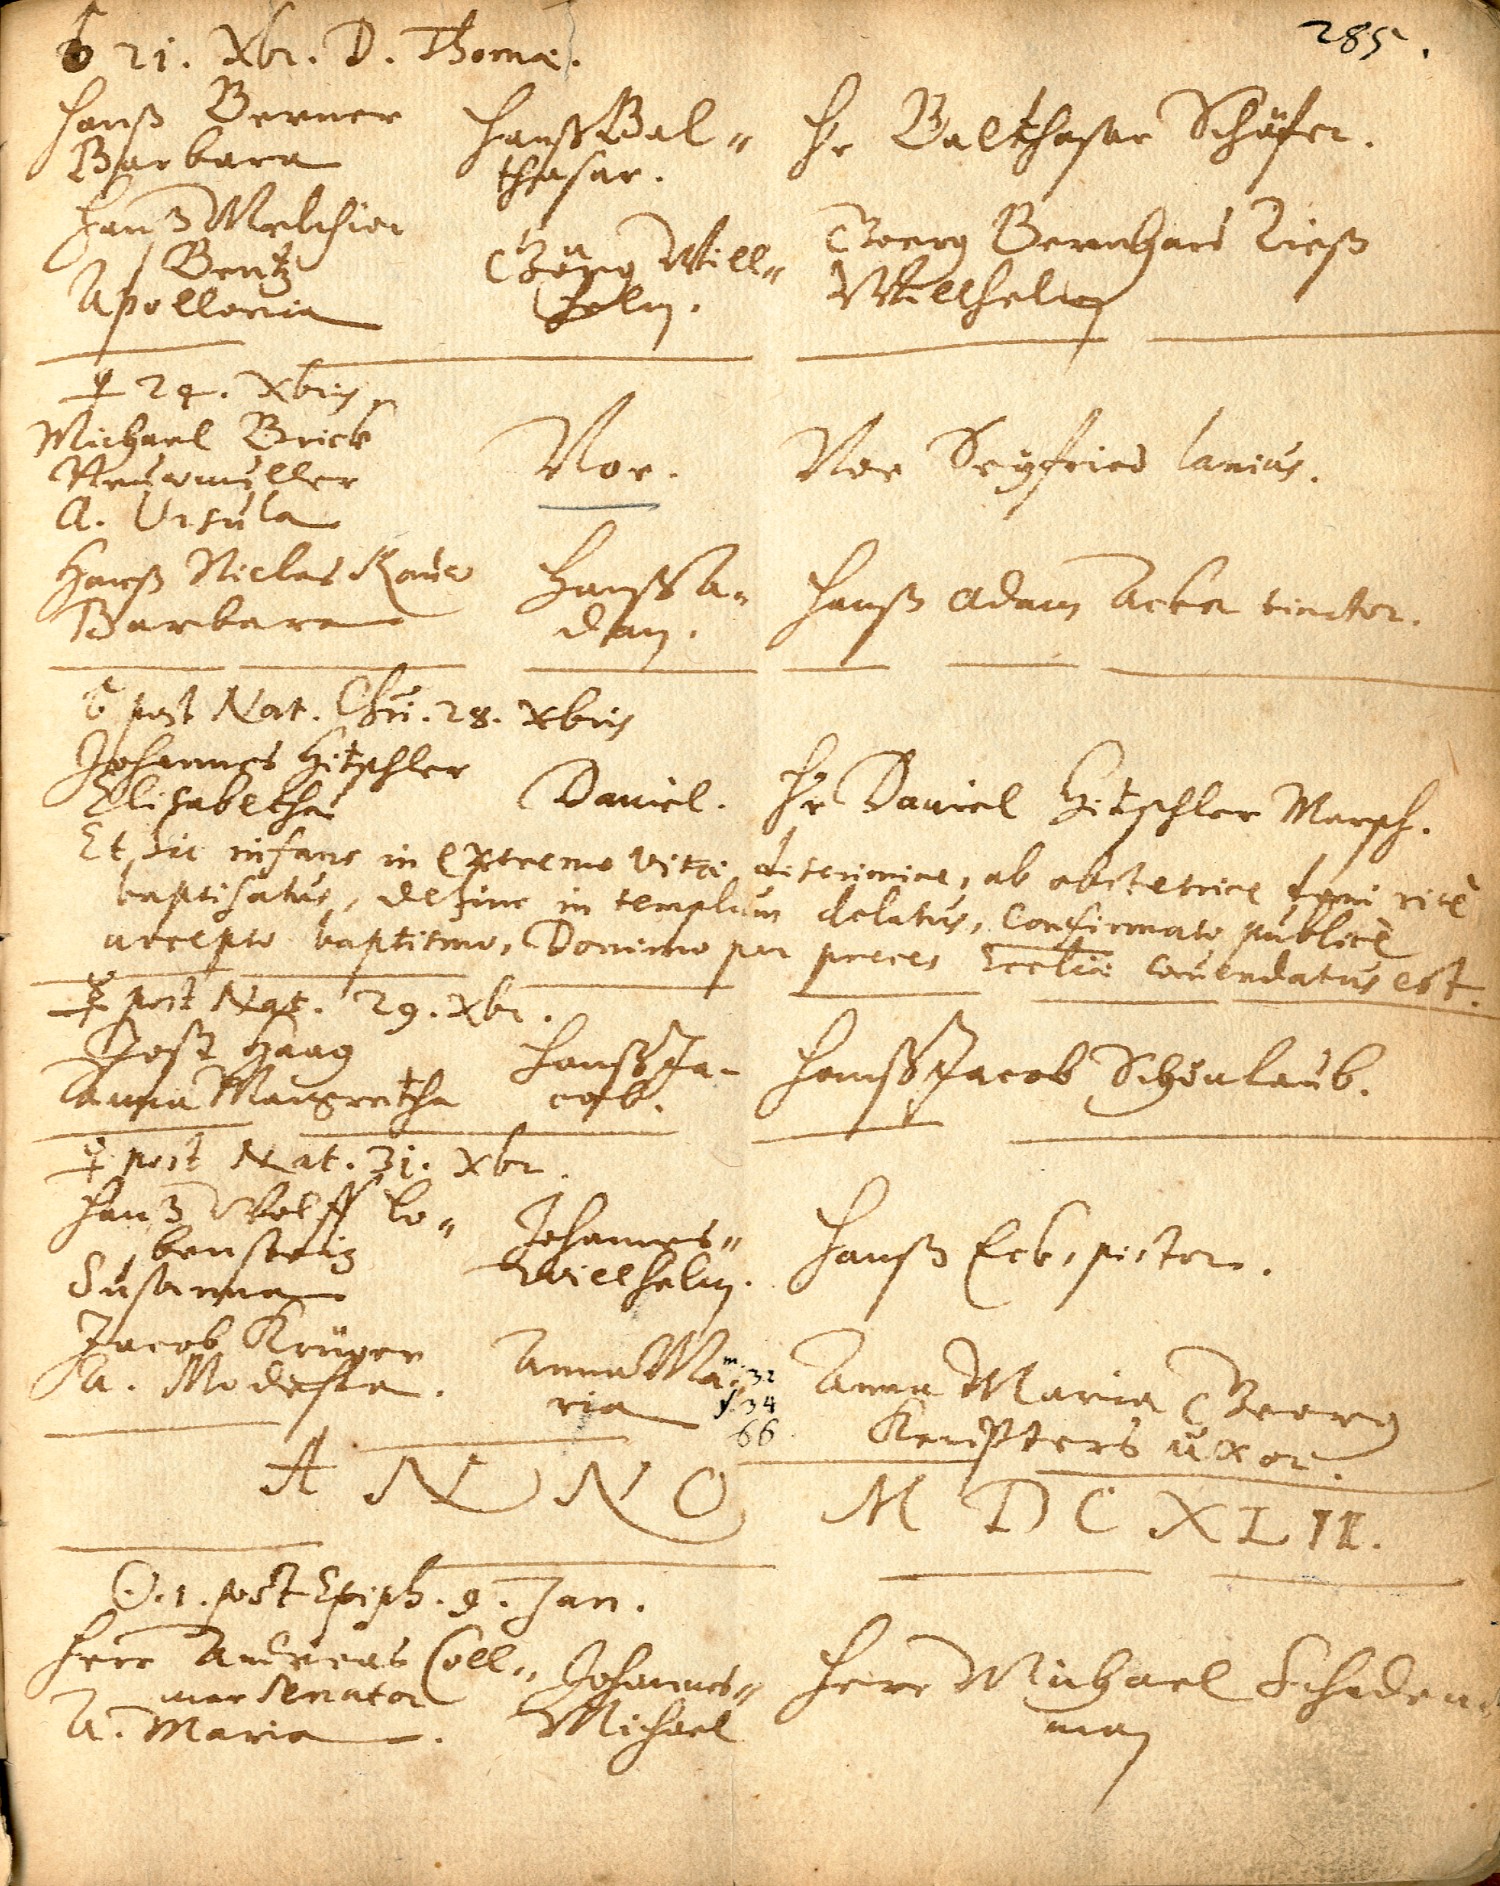 285.
♄ 21. Xbr. D. Thomæ.
Hanß Berner
Barbara
Hanß Bal=
thasar.
Hr Balthasar Schäfer.
Hanß Melchior
Bentz
Apollonia
Görg Will=
helm.
Georg Bernhard Dieß
Willhelm
♀ 24. Xbris
Michael Brick
Neuwmüller
A. Ursula
Noe.
Noe Seyfried lanius.
Hanß Niclas
Barbara
Hanß A=
dam.
Hanß Adam Acker tinctor.
post Nat. Chri. 28. Xbris
Johannes Hitschler
Elisabetha
Daniel.
Hr Daniel Hitschler
Et hic infans in extremo vitæ discrimine, ab obstetrice rite
baptisatus, dehinc in templum delatus, confirmato publice
accepto baptismo, Domino per preces Eccliæ comendatus est.
post Nat. 29. Xbr.
Jost Haag
Anna Margretha
Hanß Ja=
cob.
Hanß Jacob Schönlaub.
♀ post Nat. 31. Xbr.
Hanß Wolff Lo=
benstein
Susanna
Johannes=
Willhelm.
Hanß Eck, pictor.
Jacob Krüger
A. Modesta.
Anna Ma=
ria
m. 32
f. 34
66
Anna Maria Georg
uxor.
ANNO MDCXLII.
☉. 1. post Epiph. 9. Jan.
Herr Andreas Coll=
mar Senator
A. Maria.
Johannes=
Michael
Herr Michael Schaden=
man